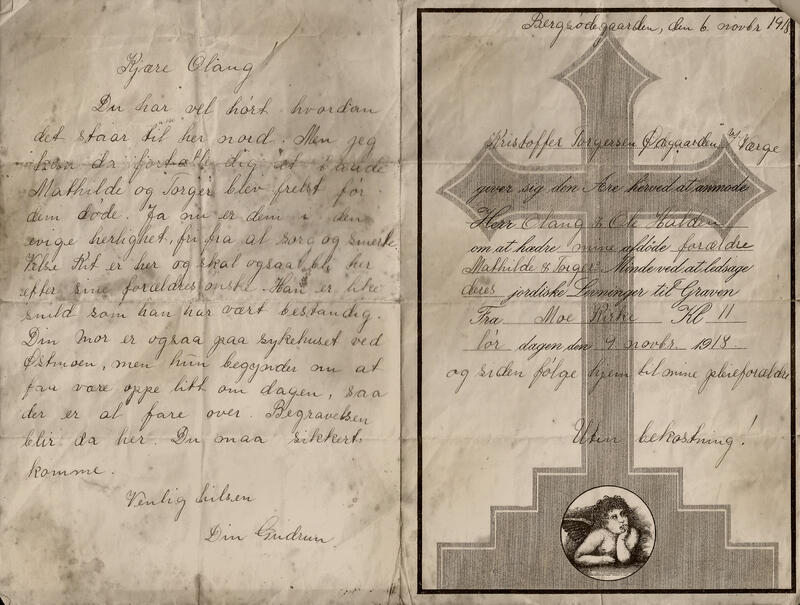 Kjære Olaug!
Du har vel hört hvordan
det staar til her nord. Men jeg
kan da fortælle dig at baade
Mathilde og Torger blev frelst för
dem döde. Ja nu er dem i den
evige herlighet, fri fra al sorg og smerte.
Kit er her og skal ogsaa bli her
efter sine forældres önske. Han er like
snild som han har vært bestandig.
Din mor er ogsaa paa sykehuset ved
Østmoen, men hun begynder nu at
faa være oppe litt om dagen, saa
der er al fare over. Begravelsen
blir da her. Du maa sikkert
komme.
Venlig hilsen
Din Gudrun.
Bergsödegaarden, den 6. novbr 1918
Kristoffer Torgersen Ødegaarden v/ Værge
giver sig den Ære herved at anmode
Herr Olaug & Ole Halden
om at hædre mine afdöde forældre
Mathilde & Torger's Minde ved at ledsage
deres jordiske Levninger til Graven
Fra Moe Kirke Kl 11
lör dagen, den 9 novbr. 1918.
og siden fölge hjem til mine pleieforældre
Uten bekostning!